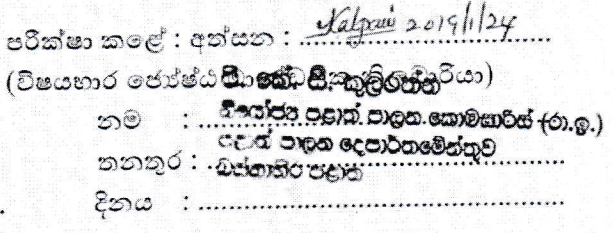 පරීක්ෂා කළේ : අත්සන : Kalpani 2019/1/24
(විෂයභාර ජ්‍යේෂ්ඨ
සී. කුලරත්න
නම : නියෝජ්‍ය පළාත් පාලන කොමසාරිස් (රා.ඉ.)
පළාත් පාලන දෙපාර්තමේන්තුව
තනතුර :
බස්නාහිර පළාත
දිනය :